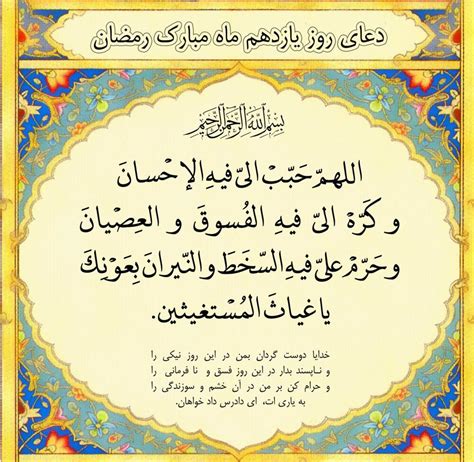 دعای روز یازدهم ماه مبارک رمضان
بسم الله الرحمن الرحیم
اللهمّ حَبّبْ الیّ فیهِ الإحْسانَ
و کَرّهْ الیّ فیهِ الفُسوقَ و العِصْیانَ
وحَرّمْ علیّ فیهِ السّخَطَ والنّیرانَ بِعَوْنِكَ
یا غیاثَ المُسْتغیثین.
خدایا دوست گردان بمن در این روز نیکی را
و ناپسند بدار در این روز فسق و نا فرمانی را
و حرام کن بر من در آن خشم و سوزندگی را
به یاری ات، ای دادرس داد خواهان.